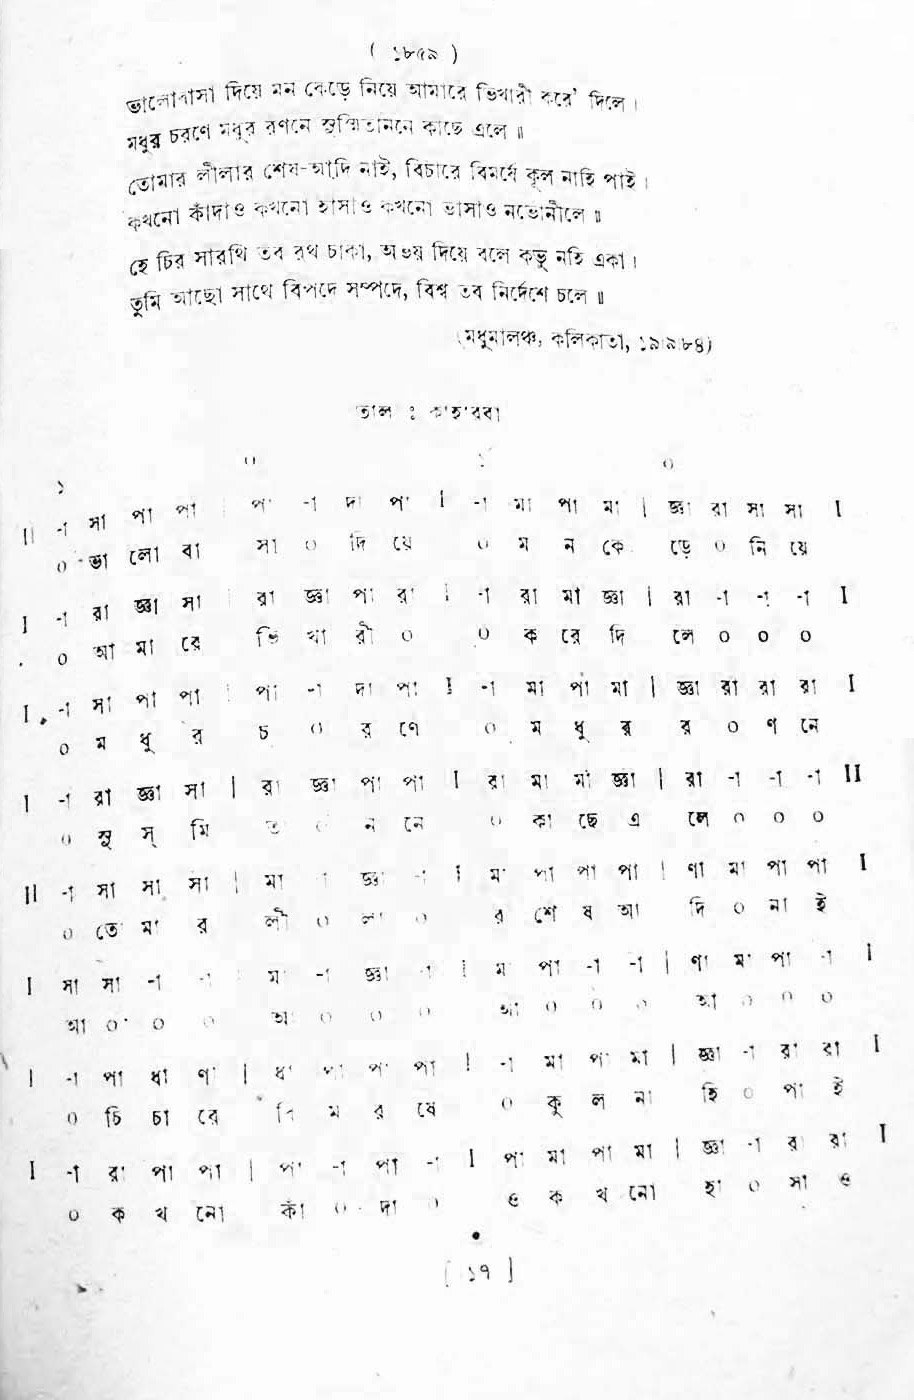 ( ১৮৫৯ )
ভালোবাসা দিয়ে মন কেড়ে নিয়ে আমারে ভিখারী করে' দিলে।
মধুর চরণে মধুর রণনে সুস্মিতাননে কাছে এলে॥
তোমার লীলার শেষ-আদি নাই, বিচারে বিমর্ষে কূল নাহি পাই।
কখনো কাঁদাও কখনো হাসাও কখনো ভাসাও নভোনীলে॥
হে চির সারথি তব রথ চাকা, অভয় দিয়ে বলে কভু নহি একা।
তুমি আছো সাথে বিপদে সম্পদে, বিশ্ব তব নির্দেশে চলে॥
(মধুমালঞ্চ, কলিকাতা, ১৯।৯।৮৪)
তাল : কাহারবা
১ ০ ১ ০
II -া সা পা পা | পা -া দা পা I -া মা পা মা | জ্ঞা রা সা সা I
০ ভা লো বা সা ০ দি য়ে ০ ম ন কে ড়ে ০ নি য়ে
I -া রা জ্ঞা সা | রা জ্ঞা পা রা I -া রা মা জ্ঞা | রা -া -া -া I
০ আ মা রে ভি খা রী ০ ০ ক রে দি লে ০ ০ ০
I -া সা পা পা | পা -া দা পা I -া মা পা মা | জ্ঞা রা রা রা I
০ ম ধু র চ ০ র ণে ০ ম ধু র র ০ ণ নে
I -া রা জ্ঞা সা | রা জ্ঞা পা পা I রা মা মা জ্ঞা | রা -া -া -া II
০ সু স্ মি তা ০ ন নে ০ কা ছে এ লে ০ ০ ০
II -া সা সা সা | মা -া জ্ঞা -া I মা পা পা পা | ণা মা পা পা I
০ তো মা র লী ০ লা ০ র শে ষ আ দি ০ না ই
I সা সা -া -া | মা -া জ্ঞা -া I মা পা -া -া | ণা মা পা -া I
আ ০ ০ ০ আ ০ ০ ০ আ ০ ০ ০ আ ০ ০ ০
I -া পা ধা ণা | ধা পা পা পা I -া মা পা মা | জ্ঞা -া রা রা I
০ চি চা রে বি ম র ষে ০ কু ল না হি ০ পা ই
I -া রা পা পা | পা -া পা -া I পা মা পা মা | জ্ঞা -া রা রা I
০ ক খ নো কাঁ ০ দা ০ ও ক খ নো হা ০ সা ও
[ ১৭ ]